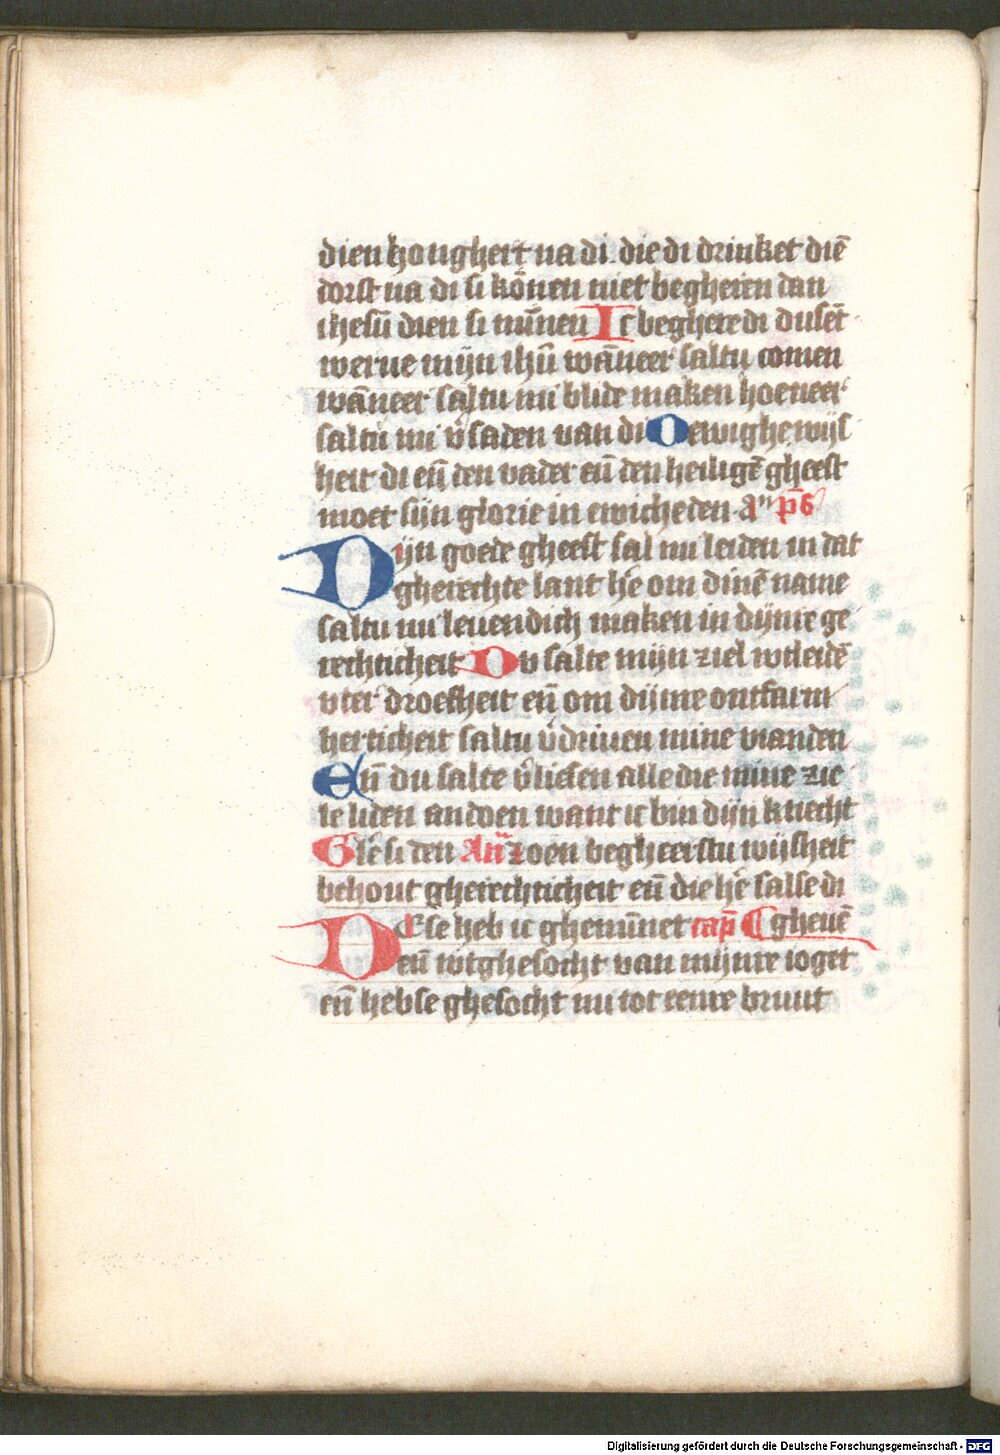 dien honghert na di. die di drinket diē
dorst na di si kōnen niet begheren dan
ihesū dien si mīnen Ic beghere di dusēt
werue mijn ihū wāneer saltu comen
wāneer saltu mi blide maken hoeneer
saltu mi v̄saden van di O ewighe wijs
heit di eñ den vader eñ den heiligē gheest
moet sijn glorie in ewicheden. an p̄s
Dijn goede gheest sal mi leiden in dat
gherechte lant he om dinē name
saltu mi leuendich maken in dijnre ge
rechticheit Du salte mijn ziel wtleidē
vter droefheit eñ om dijnre ontfarm
herticheit saltu v̄driuen mine vianden
Eñ du salte v̄liesen alle die mine zie
le liden andoen want ic bin dijn knecht
Glē si den Añ zoen begheerstu wijsheit
behout gherechticheit eñ die he salse di
Dese heb ic ghemīnet cap̄ gheuē
eñ wtghesocht van mijnre ioget
eñ hebse ghesocht mi tot eenre bruut
Digitalisierung gefördert durch die Deutsche Forschungsgemeinschaft - DFG